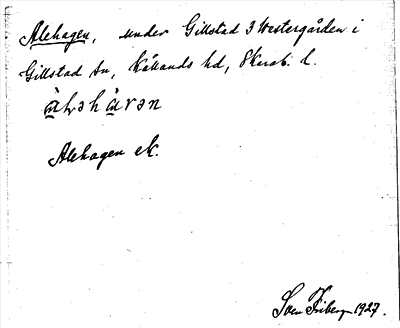 Alehagen, under Gillstad 3 Westergården i
Gillstad sn, Kållands hd, Skarab. l.
Alehagen ek.
Sven Friberg 1927.